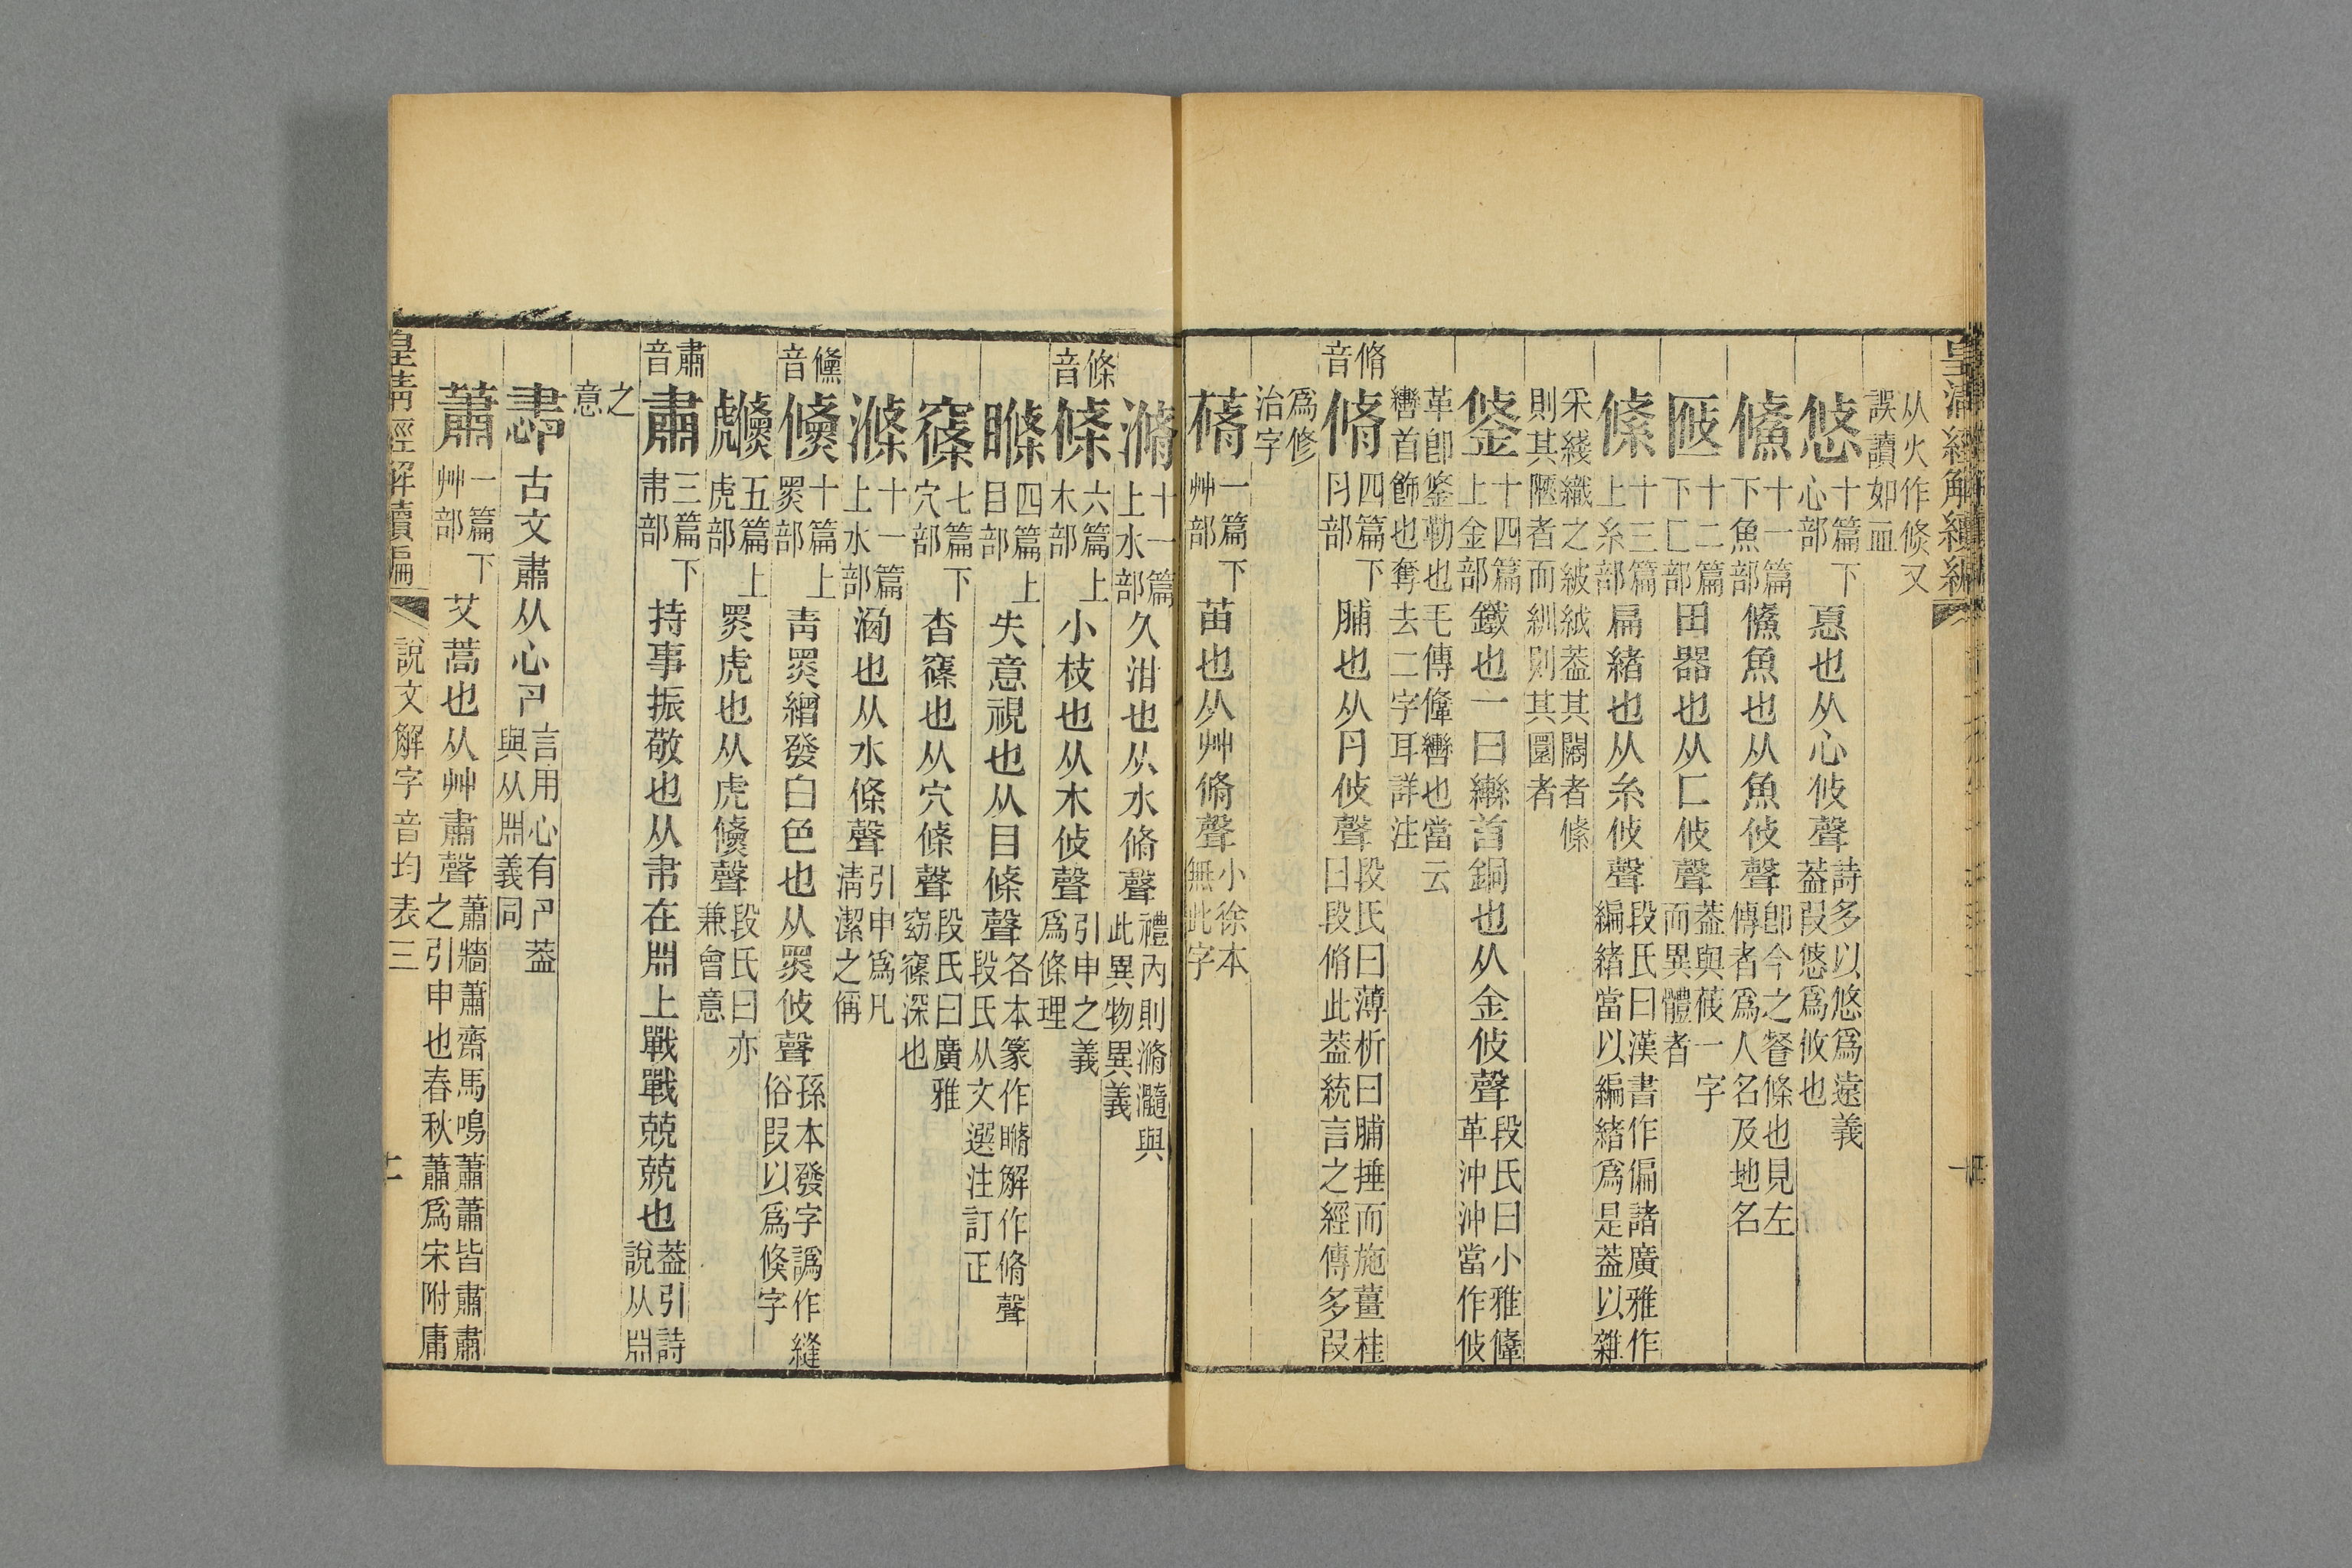 皇清經解續編
从火作倏又
誤讀如血
悠十篇下心部𢝊也从心攸聲詩多以悠爲遠義葢叚悠爲攸也
鯈十一篇下魚部鯈魚也从魚攸聲卽今之䱗條也見左傳者爲人名及地名
匨十二篇下匚部田器也从匚攸聲葢與莜一字而異體者
絛十三篇上糸部扁緒也从糸攸聲段氏曰漢書作偏諸廣雅作編緒當以編緒爲是葢以雜
采綫織之紴絨葢其闊者絛
則其陿者而紃則其圜者
鋚十四篇上金部鐵也一曰轡首銅也从金攸聲段氏曰小雅鞗革沖沖當作攸
革卽鋚勒也毛傳鞗轡也當云
轡首飾也奪去二字耳詳注
脩音
脩四篇下肉部脯也从肉攸聲段氏曰薄析曰脯捶而施薑桂曰段脩此葢統言之經傳多叚
爲修
治字
蓨一篇下艸部苗也从艸脩聲小徐本無此字
滫十一篇上水部久泔也从水脩聲禮內則滫瀡與此異物異義
條音
條六篇上木部小枝也从木攸聲引申之義爲條理
𥊍四篇上目部失意視也从目條聲各本篆作䐺解作脩聲段氏从文選注訂正
窱七篇下穴部杳窱也从穴條聲段氏曰廣雅窈窱深也
滌十一篇上水部洒也从水條聲引申爲凡淸潔之偁
儵音
儵十篇上黑部靑黑繒發白色也从黑攸聲孫本發字譌作縫俗叚以爲倏字
虪五篇上虎部黑虎也从虎儵聲段氏曰亦兼會意
肅音
肅三篇下𦘒部持事振敬也从𦘒在𣶒上戰戰兢兢也葢引詩說从𣶒
之
意
𢙻古文肅从心卪言用心有卪葢與从𣶒義同
蕭一篇下艸部艾蒿也从艸肅聲蕭牆蕭齋馬鳴蕭蕭皆肅肅之引申也春秋蕭爲宋附庸
皇淸經解續編
說文解字音均表三